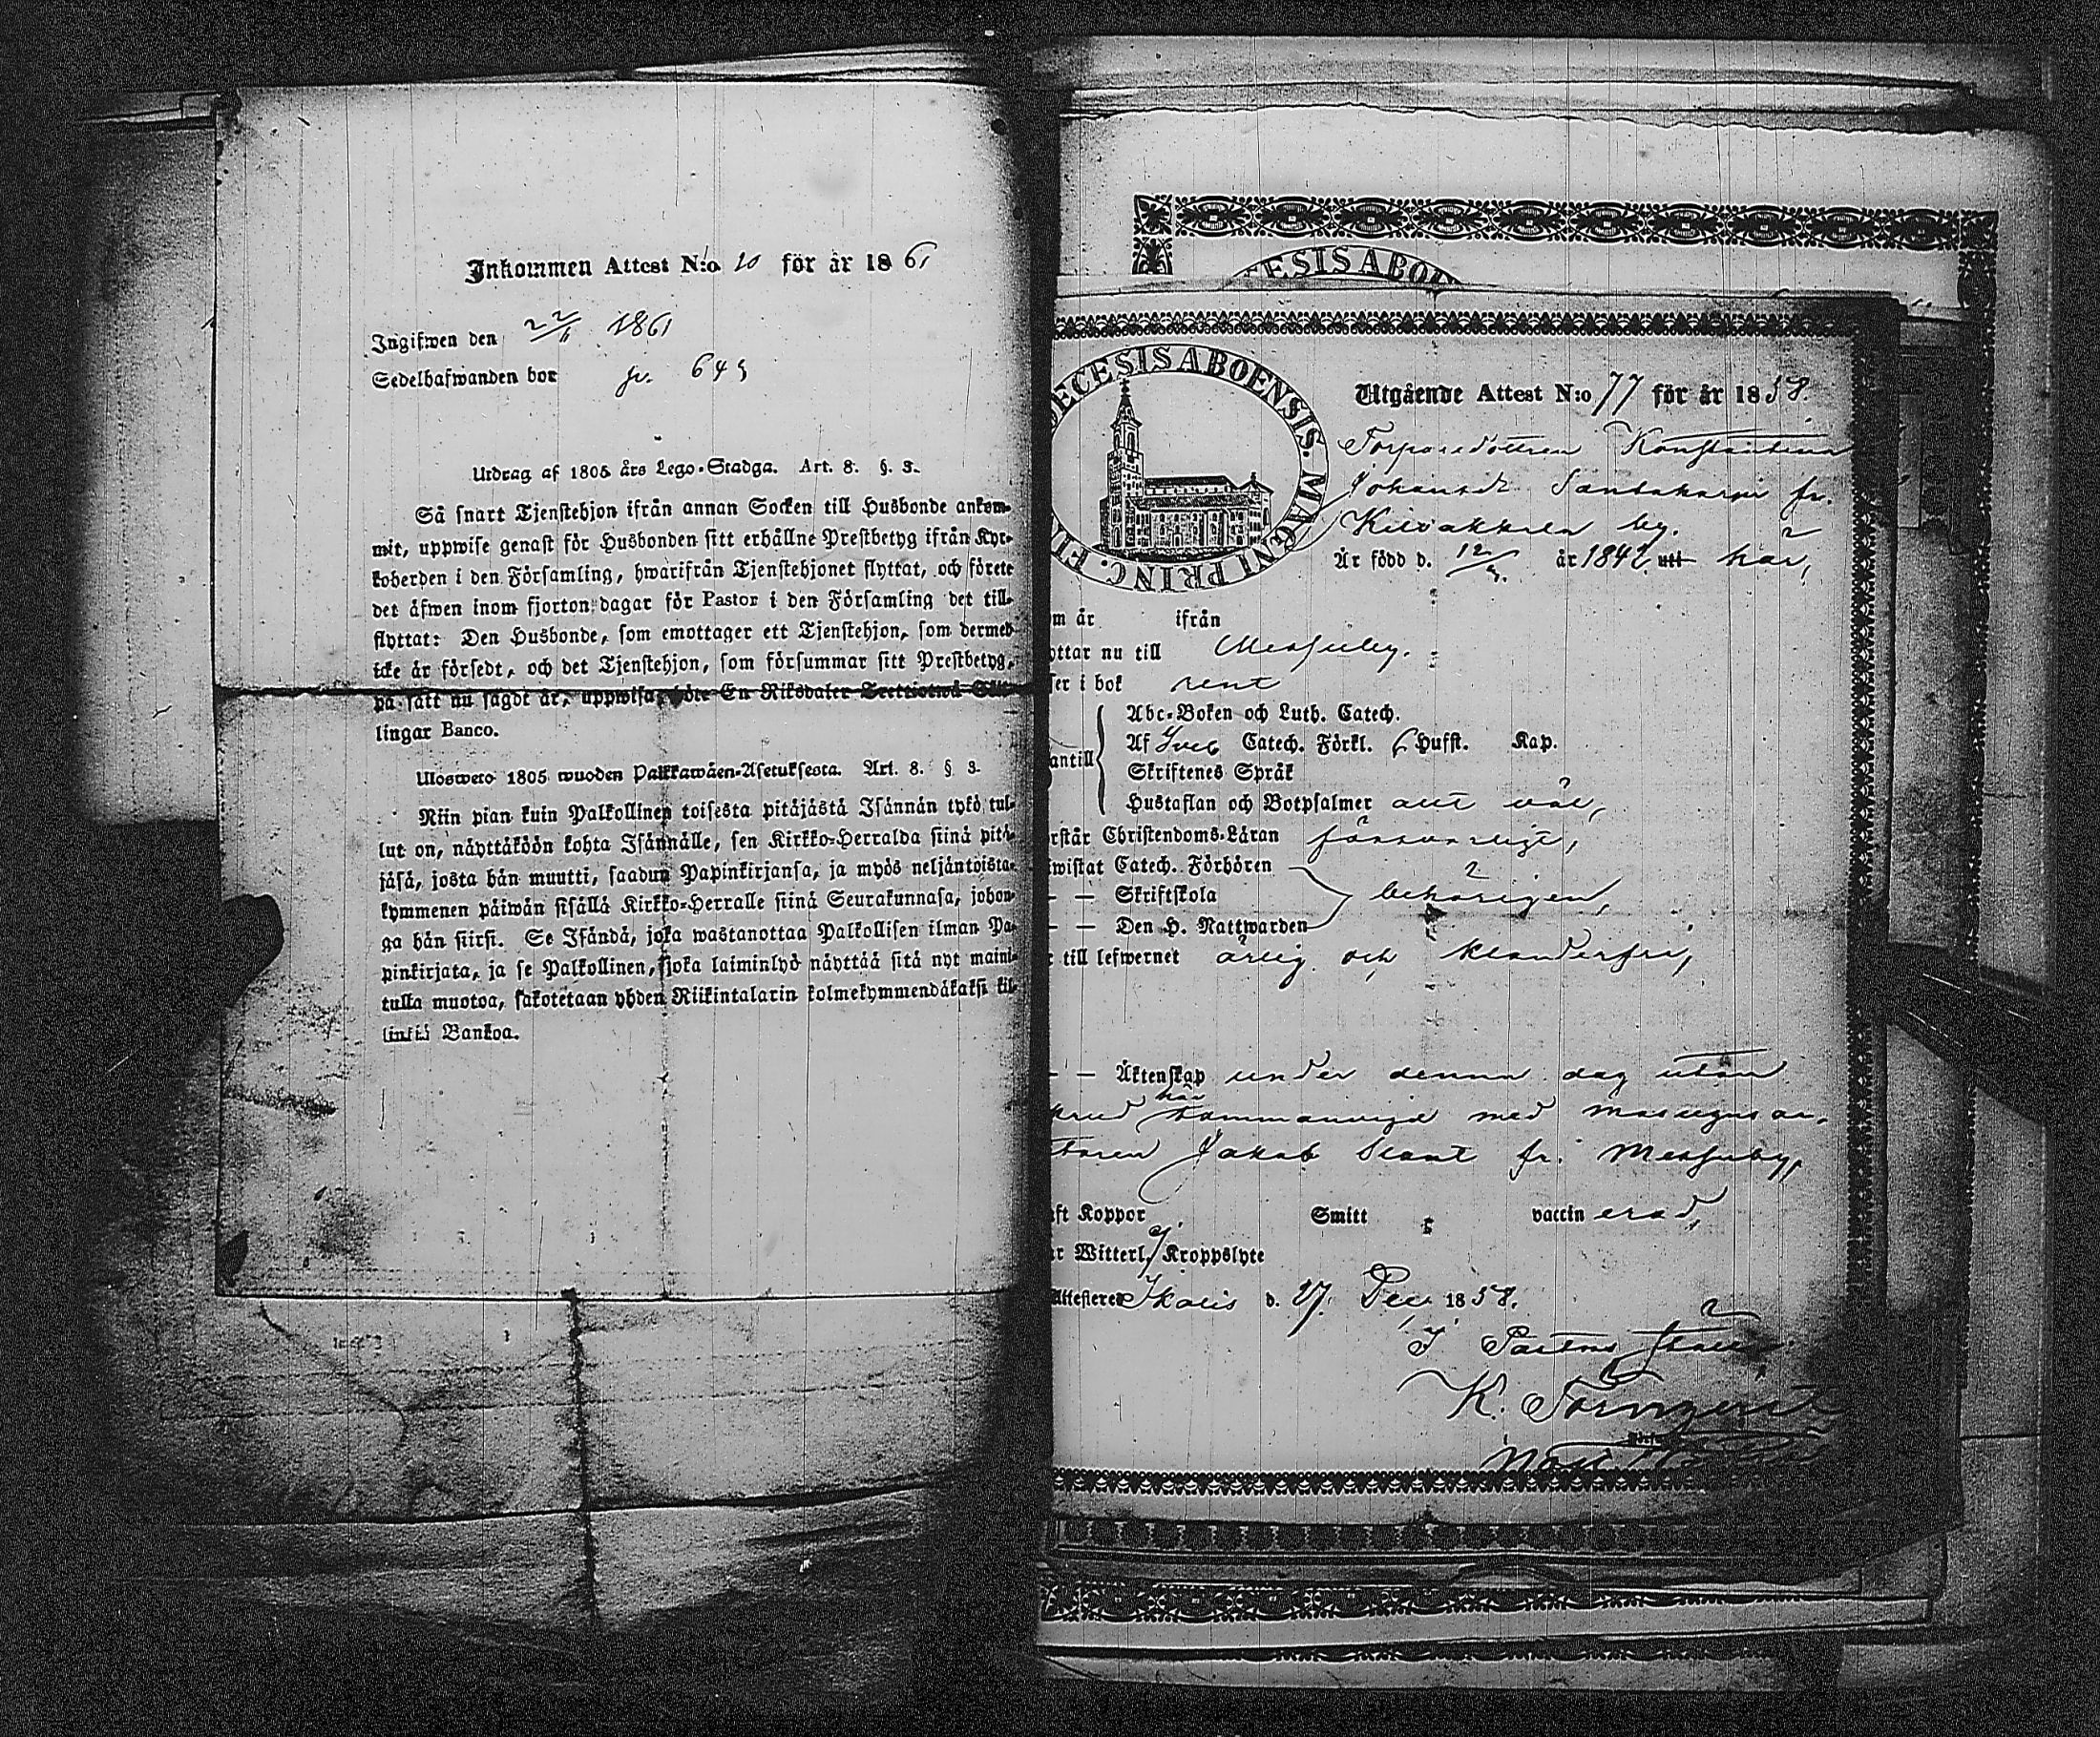 Inkommen Attest N:o 10 för år 1861
Ingifwen den 22/11 1861
Sedelhafwanden bor fr. 649
Utdrag af 1805 års Lego-Stadga. Art. 8. §. 3.
Så snart Tjenstehjon ifrån annan Socken till Husbonde ankom-
mit, uppwise genast för Husbonden sitt erhållne Prestbetyg ifrån Kyr-
koherden i den Församling, hwarifrån Tjenstehjonet flyttat, och förete
det äfwen inom fjorton dagar för Pastor i den Församling det till-
flyttat: Den Husbonde, som emottager ett Tjenstehjon, som dermed
icke är försedt, och det Tjenstehjon, som försummar sitt Prestbetyg,
på sätt nu sagdt är, uppwisa, böte En Riksdaler Trettiotwå Skil-
lingar Banco.
Ulosweto 1805 wuoden Palkkawäen-Asetuksesta. Art. 8. § 3.
Niin pian kuin Palkollinen toisesta pitäjästä Isännän tykö tul-
lut on, näyttäköön kohta Isännälle, sen Kirkko-Herralda siinä pitä-
jäsä, josta hän muutti, saadun Papinkirjansa, ja myös neljäntoista-
kymmenen päiwän sisällä Kirkko-Herralle siinä Seurakunnasa, johon-
ga hän siirsi. Se Isändä, joka wastanottaa Palkollisen ilman Pa-
pinkirjata, ja se Palkollinen, joka laiminlyö näyttää sitä nyt maini-
tulla muotoa, sakotetaan yhden Riikintalarin kolmekymmendäkaksi kil-
linkiä Bankoa.
ESIS ABOE
DECESIS ABOENSIS. MAGNI PRINC. FI
Utgående Attest N:o 77 för år 1858.
Torparedottren Konstantina
Johansdr Sandakarpi fr.
Kilvakkala by.
Är född d. 12/ år 1842 utt här,
m år ifrån
yttar nu till Messuby.
ser i bok rent
Abc-Boken och Luth. Catech.
Af Sveb Catech. Förkl. 6 Hufst. Kap.
antill
Skriftenes Språk
Hustaflan och Botpsalmer allt väl,
rstår Christendoms-Läran försvarligt,
iwistat Catech. Förhören
— — Skriftskola behörigen,
— — Den H. Nattwarden
till lefwernet ärlig och klanderfri,
— — Äktenskap under denna dag utan
brud här sammanvigd med
Jakob fr. Messuby,
ft Koppor Smitt vaccinerad,
r Witterl. Kroppslyte
Attesteres Ikalis d. 27. Dec. 1858.
I Pastors ställe
K. Törnqvist